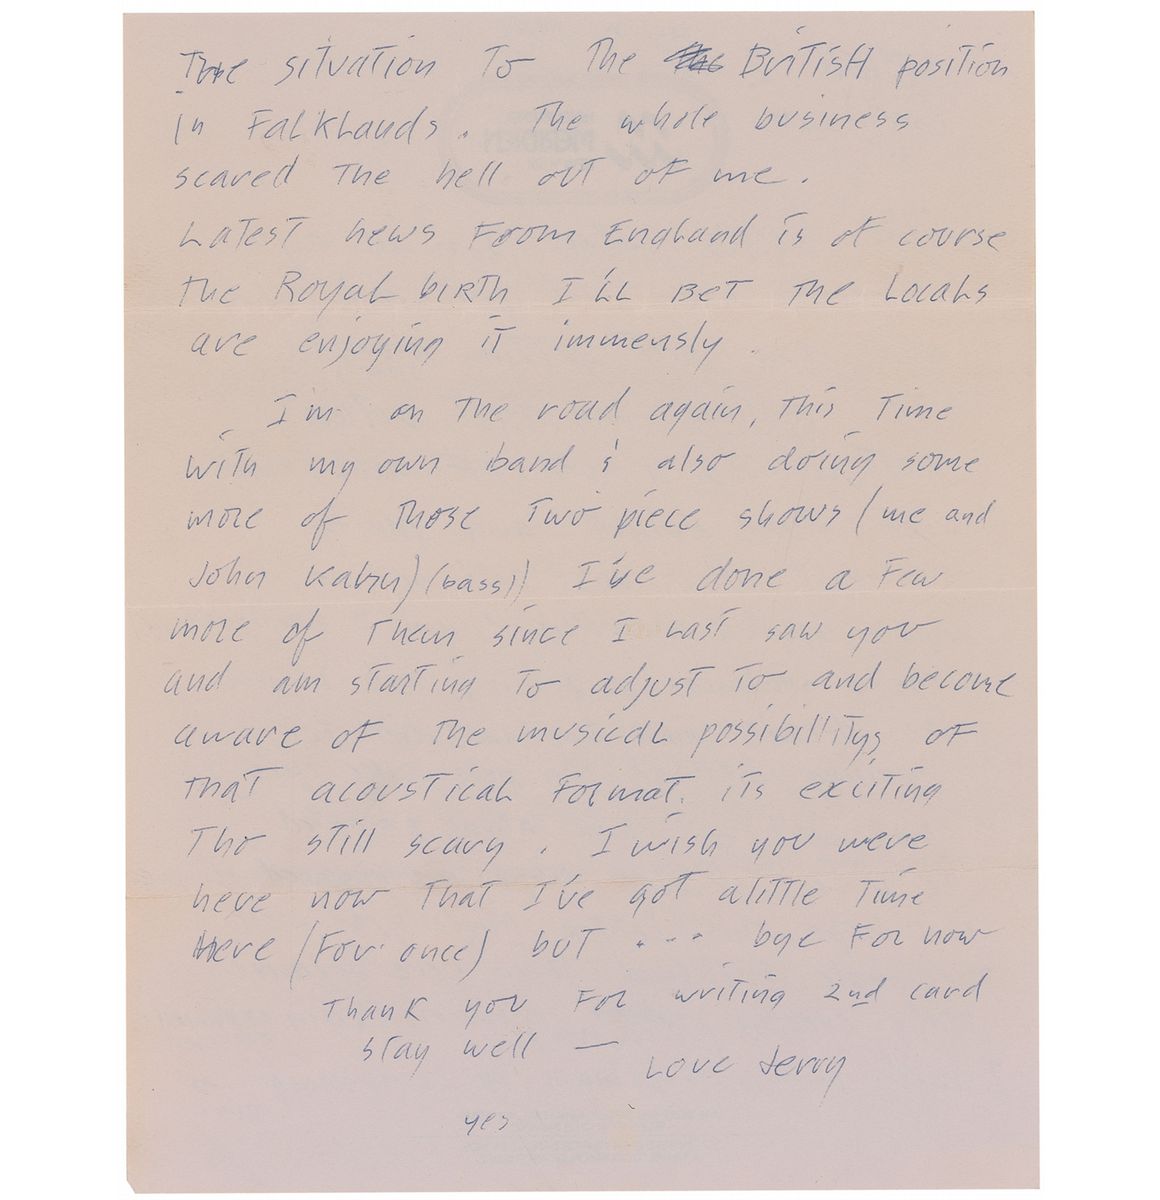 The situation to the British position
in Falklands. The whole business
scared the hell out of me.
Latest news From England is of course
the Royal birth I'll Bet the Locals
are enjoying it immensly.
I'm on the road again, this Time
with my own band & also doing some
more of those Two piece shows (me and
John Kahn) (bass)) I've done a Few
more of them since I last saw you
and am starting to adjust to and become
aware of the musical possibilitys of
that acoustical Format. its exciting
Tho still scary. I wish you were
here now that I've got alittle Time
Here (For once) but .... bye For now
Thank you For writing 2nd card
stay well —
Love Jerry
yes